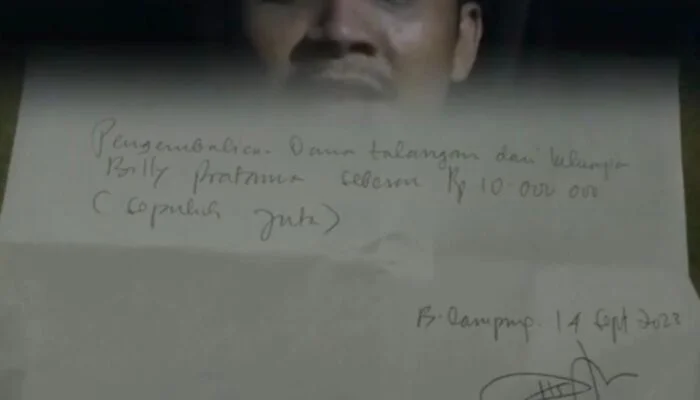 Pengembalian Dana talangan dari keluarga
Billy Pratama sebesar Rp 10.000.000
(sepuluh juta)
B. Lampung. 14 Sept 2023